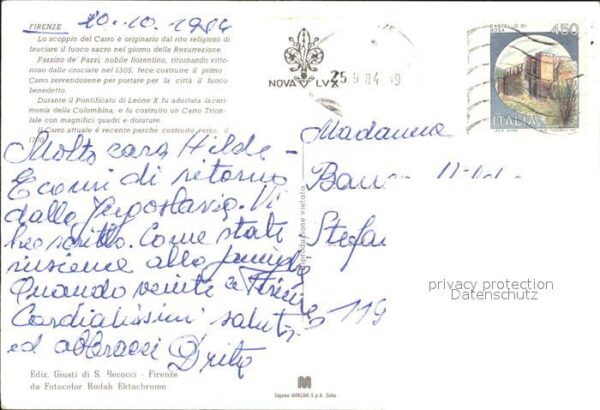 20.10.1984
FIRENZE
Lo scoppio del Carro è originario dal rito religioso di
bruciare il fuoco sacro nel giorno della Resurrezione.
Pazzino de' Pazzi, nobile fiorentino, ritornando vitto-
rioso dalle crociate nel 1305, fece costruire il primo
Carro servendosene per portare per la città il fuoco
benedetto.
Durante il Pontificato di Leone X fu adottata la ceri-
monia della Colombina, e fu costruito un Carro Trion-
fale con magnifici quadri e dorature.
Il Carro attuale è recente perchè costruito verso il
Molto cara Hilde -
Eccomi di ritorno
dalla Jugoslavia. Vi
ho scritto. Come state
insieme alla famiglia
Quando venite a Firenze
Cordialissimi saluti
ed abbracci
Ediz. Giusti di S. Becocci - Firenze
da Fotocolor Kodak Ektachrome
NOVA LVX
25 9 84 19
450
ITALIA
Madamme
Stefan
119
riproduzione vietata
privacy protection
Datenschutz
Eugenio MANZANI S.p.A.